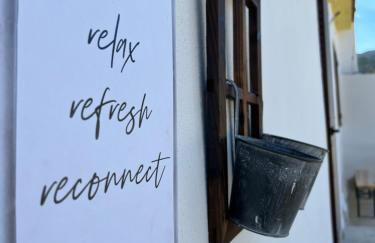 relax
refresh
reconnect